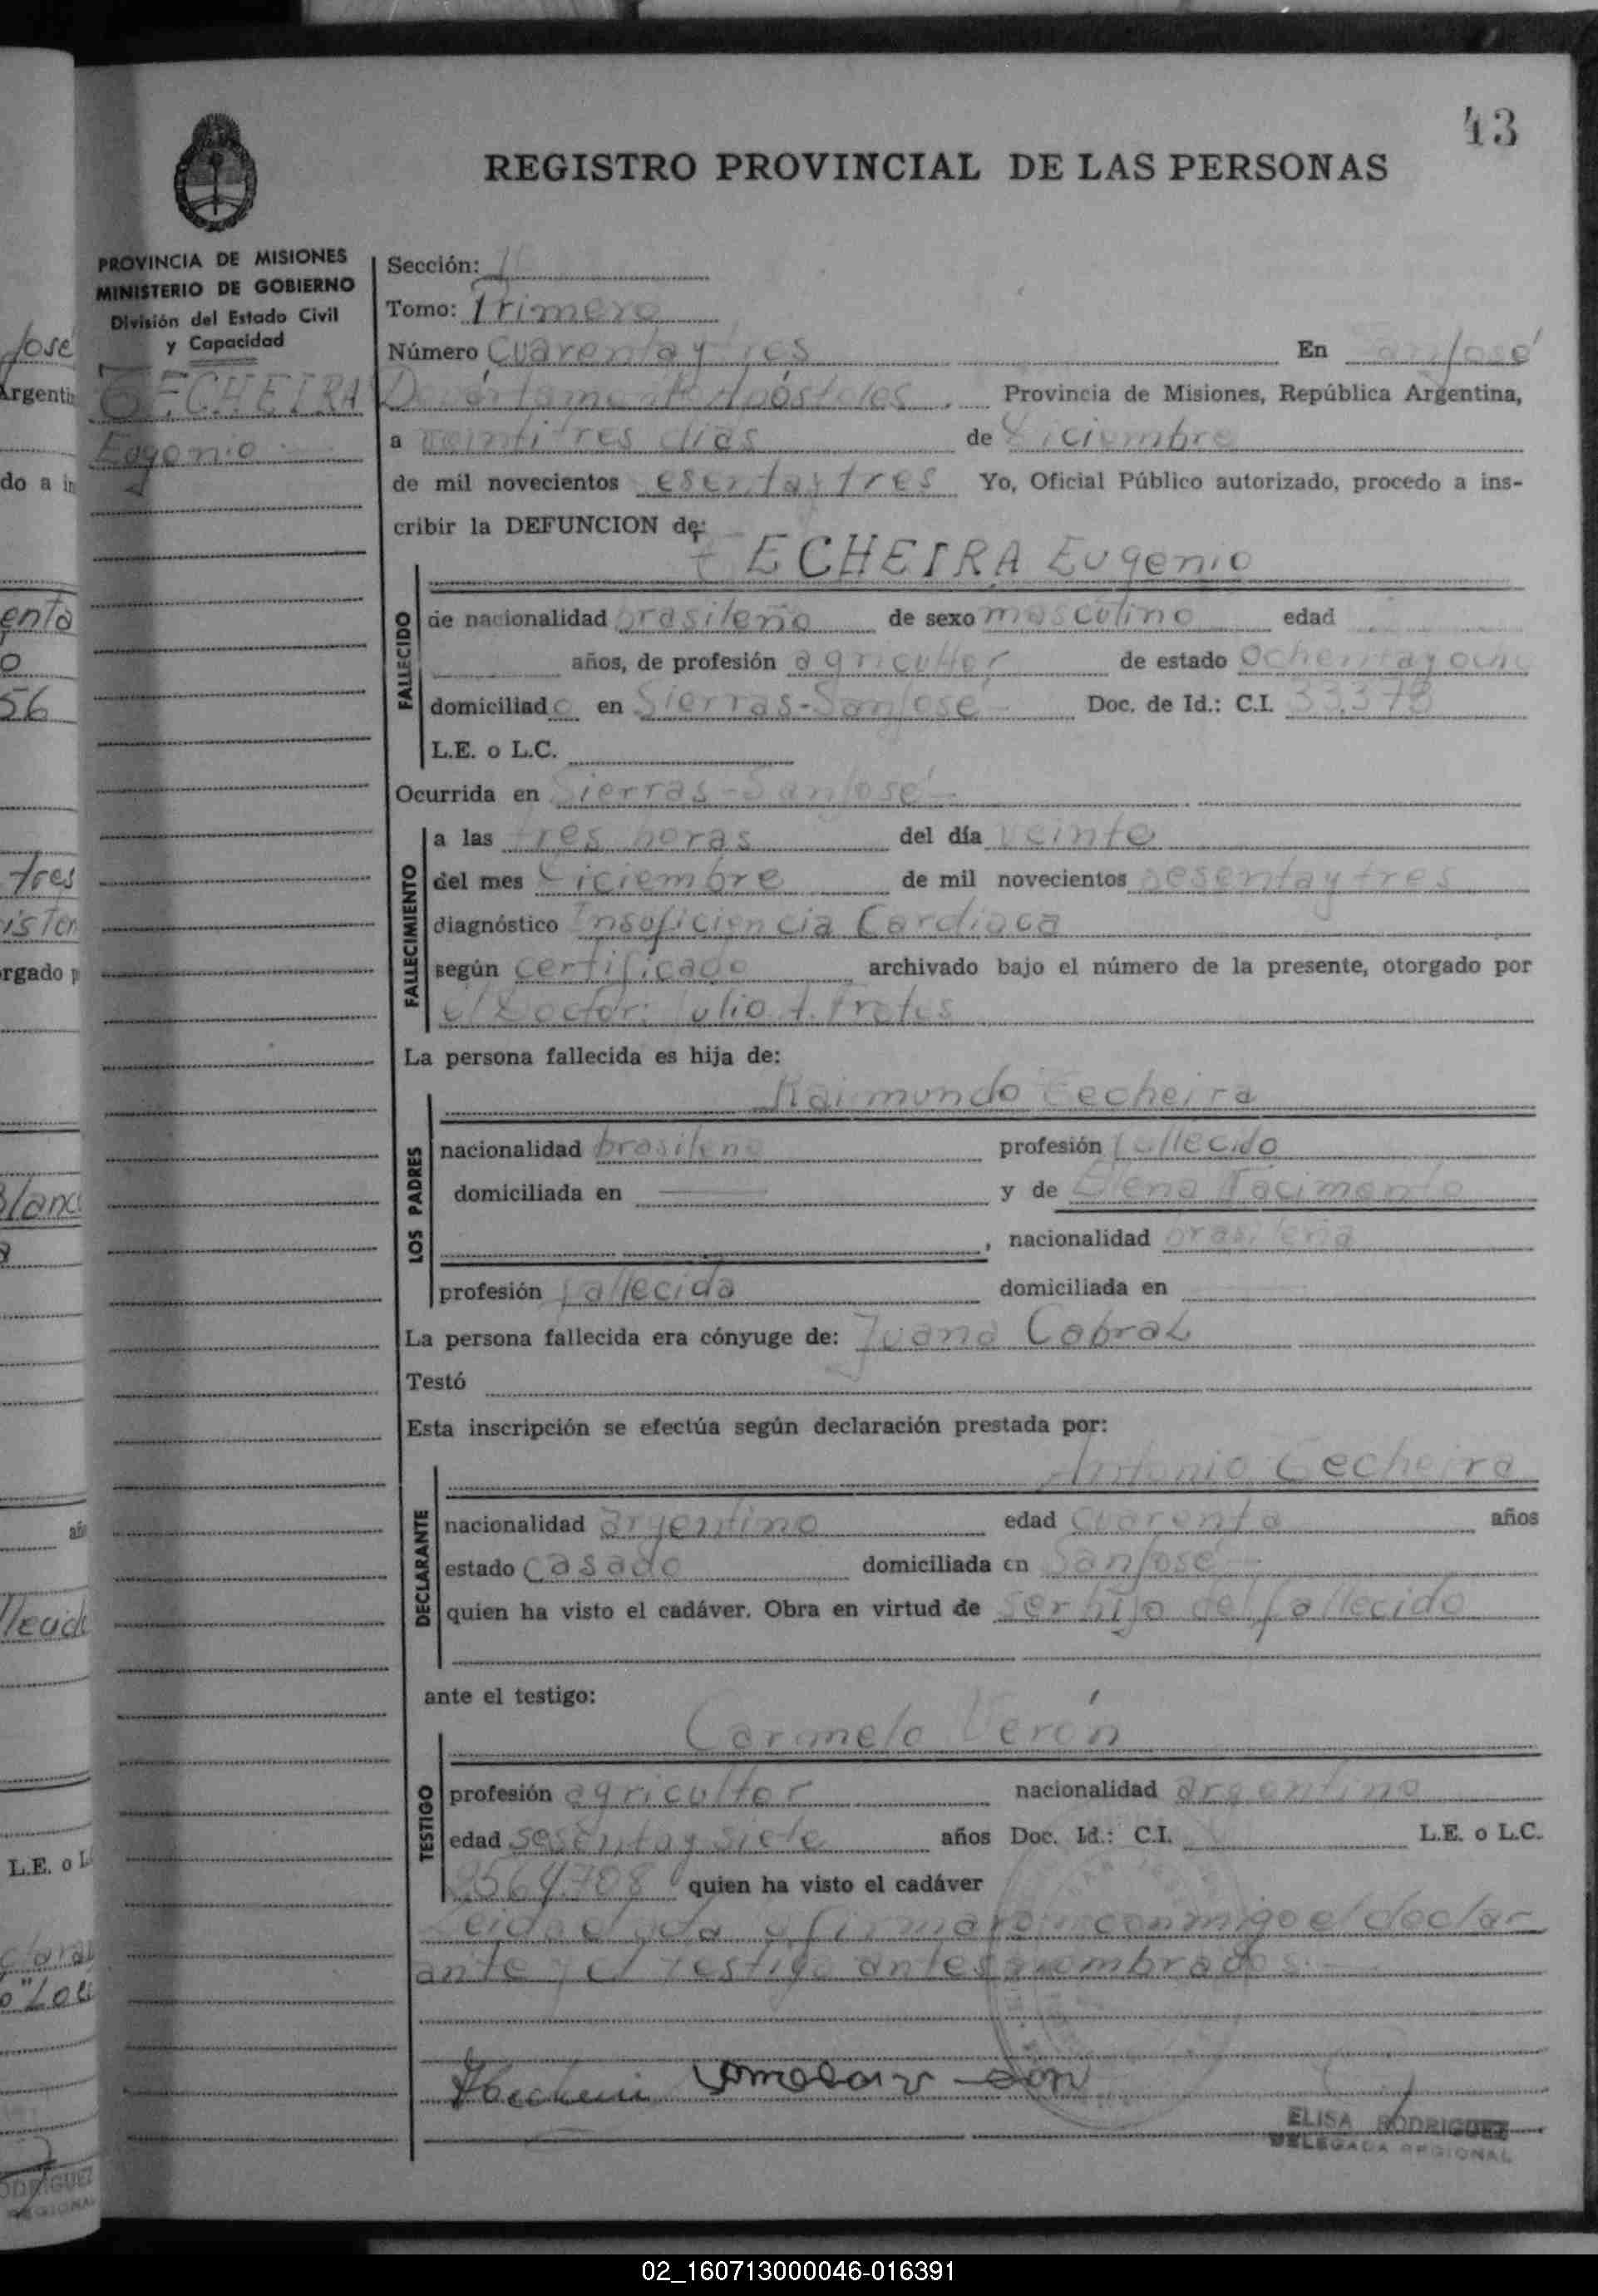 43
REGISTRO PROVINCIAL DE LAS PERSONAS
PROVINCIA DE MISIONES
MINISTERIO DE GOBIERNO
División del Estado Civil
y Capacidad
CECHEIRA
Eugenio
Sección:
Tomo: Primero
Número Cuarenta y tres En San José
Departamento Apóstoles, Provincia de Misiones, República Argentina,
a veintitres dias de Diciembre
de mil novecientos esenta y tres Yo, Oficial Público autorizado, procedo a ins-
cribir la DEFUNCION de:
ECHEIRA Eugenio
FALLECIDO
de nacionalidad brasileña de sexo masculino edad
años, de profesión agricultor de estado Ochenta y
domiciliado en Sierras-San José Doc. de Id.: C.I. 33.378
L.E. o L.C.
Ocurrida en Sierras-San José
FALLECIMIENTO
a las tres horas del día veinte
del mes Diciembre de mil novecientos sesenta y tres
diagnóstico Insuficiencia Cardiaca
según certificado archivado bajo el número de la presente, otorgado por
el Doctor: Julio A.
La persona fallecida es hija de:
LOS PADRES
Raimundo Cecheira
nacionalidad brasileña profesión fallecido
domiciliada en y de Elena
, nacionalidad brasileña
profesión fallecida domiciliada en
La persona fallecida era cónyuge de: Juana Cabral
Testó
Esta inscripción se efectúa según declaración prestada por:
DECLARANTE
Antonio Cecheira
nacionalidad argentino edad cuarenta años
estado Casado domiciliada en San José
quien ha visto el cadáver. Obra en virtud de ser hijo del fallecido
ante el testigo:
TESTIGO
Carmelo Verón
profesión agricultor nacionalidad argentino
edad sesenta y siete años Doc. Id.: C.I. L.E. o L.C.
2564708 quien ha visto el cadáver
Leida el acta y firmaron conmigo el declar
ante y el testigo antes nombrados.
ELISA RODRIGUEZ
DELEGADA REGIONAL
02_160713000046-016391